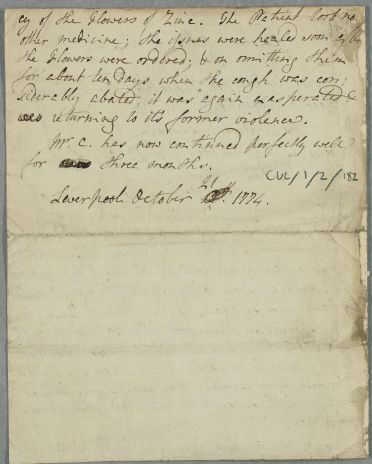 cy of the Flowers of Zinc. The Patient took no
other medicine; the issues were healed soon after
the Flowers were ordered; & on omitting them
for about ten days when the cough was con-
siderably abated, it was again exasperated &
returning to its former violence.
Mr. C. has now continued perfectly well
for three months.
CUL/1/2/182
Leverpool October 21st. 1774.